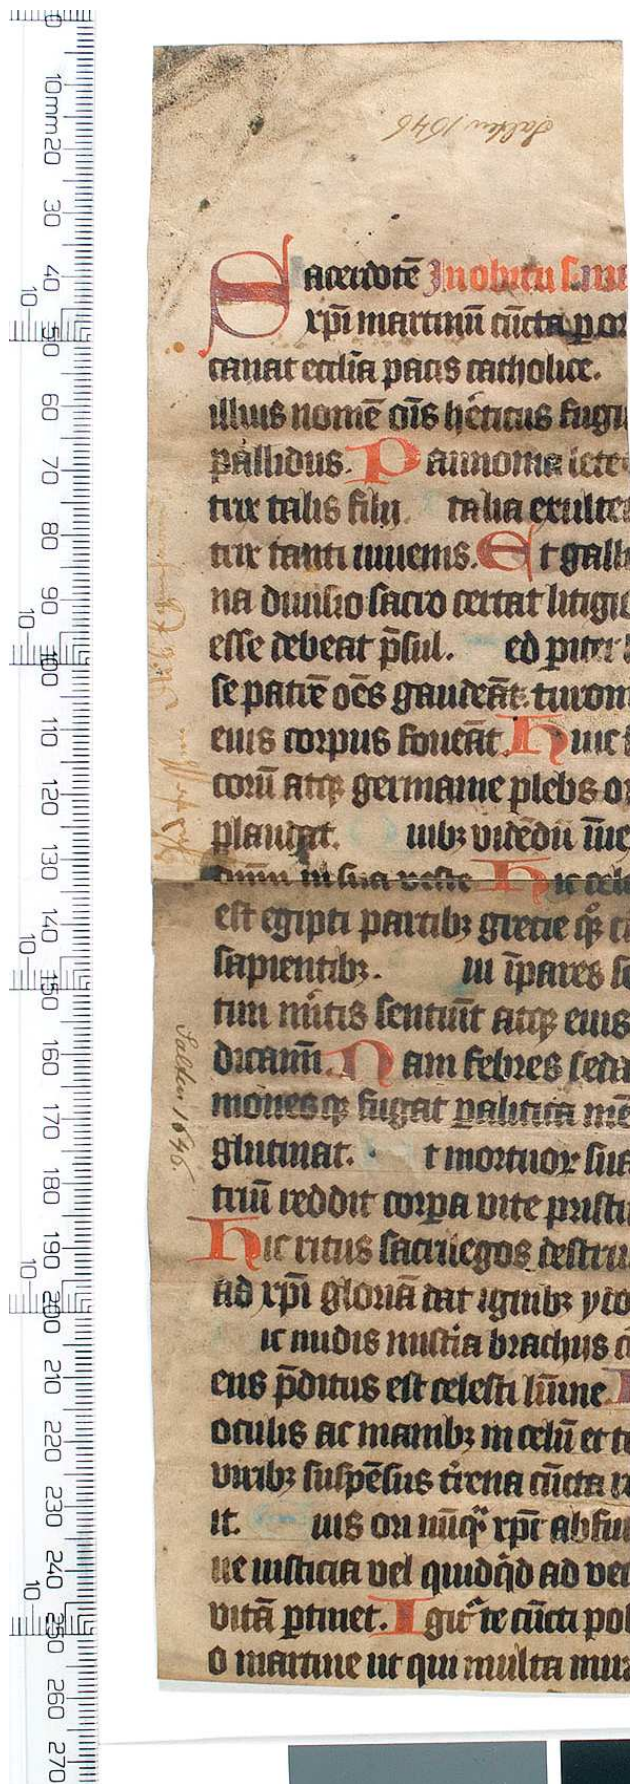 Salten 1646
Sacerdotē In obitu s. mar
xp̄i martinū cūcta p or
canat ecclīa pacis catholice.
illius nomē oīs hēticus fugi
pallidus. Pannonia lete
trix talis filii. talia exulte
trix tanti iuuenis. Et galli
na diuisio sacro certat litigio
esse debeat p̄sul. ed pariter
se patrē oēs gaudeāt. turoni
eius corpus foueāt. Huic
corū atq; germanie plebs o
plaudat. uib; vidēdū īue
dn̄m in sua veste Hic cel
est egipti partib; grecie q̊q;
sapientib;. ui īpares se
tini m̄itis sentiūt atq; eius
dicamī. Nam febres seda
mones q; fugat paliticā mē
glutinat. t mortuoꝝ sua
triū reddit corpa vite pristi
Hic ritus sacrilegos destru
ad xp̄i gloriā dat ignib; ydo
ic nudis mistia brachiis
ens p̄ditus est celesti lūine.
oculis ac manib; in celū et
virib; suspēsus t̄rena cūcta
it. uius ori nūq̄ xp̄c abfui
ue iusticia vel quidq̄d ad ve
vitā ptinet. Igit᷑ te cūcti po
o martine ut qui multa mira
Salten 1646.